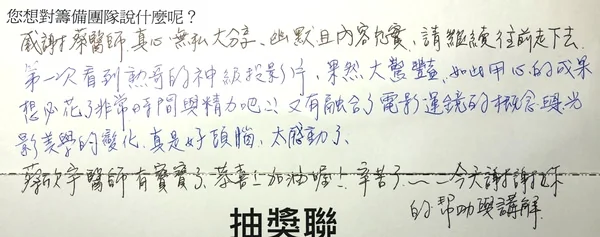 您想對籌備團隊說什麼呢?
感謝蔡醫師真心無私大分享、幽默且內容充實,請繼續往前走下去.
第一次看到熱哥的神級投影片,果然大驚豔,如此用心的成果
想必花了非常多時間與精力吧!! 又有融合了電影運鏡的概念與光
影美學的變化,真是好頭腦,太感動了.
蔡欣宇醫師有寶寶了,恭喜!! 加油喔!! 辛苦了~~~今天謝謝你
的幫助與講解
抽獎聯